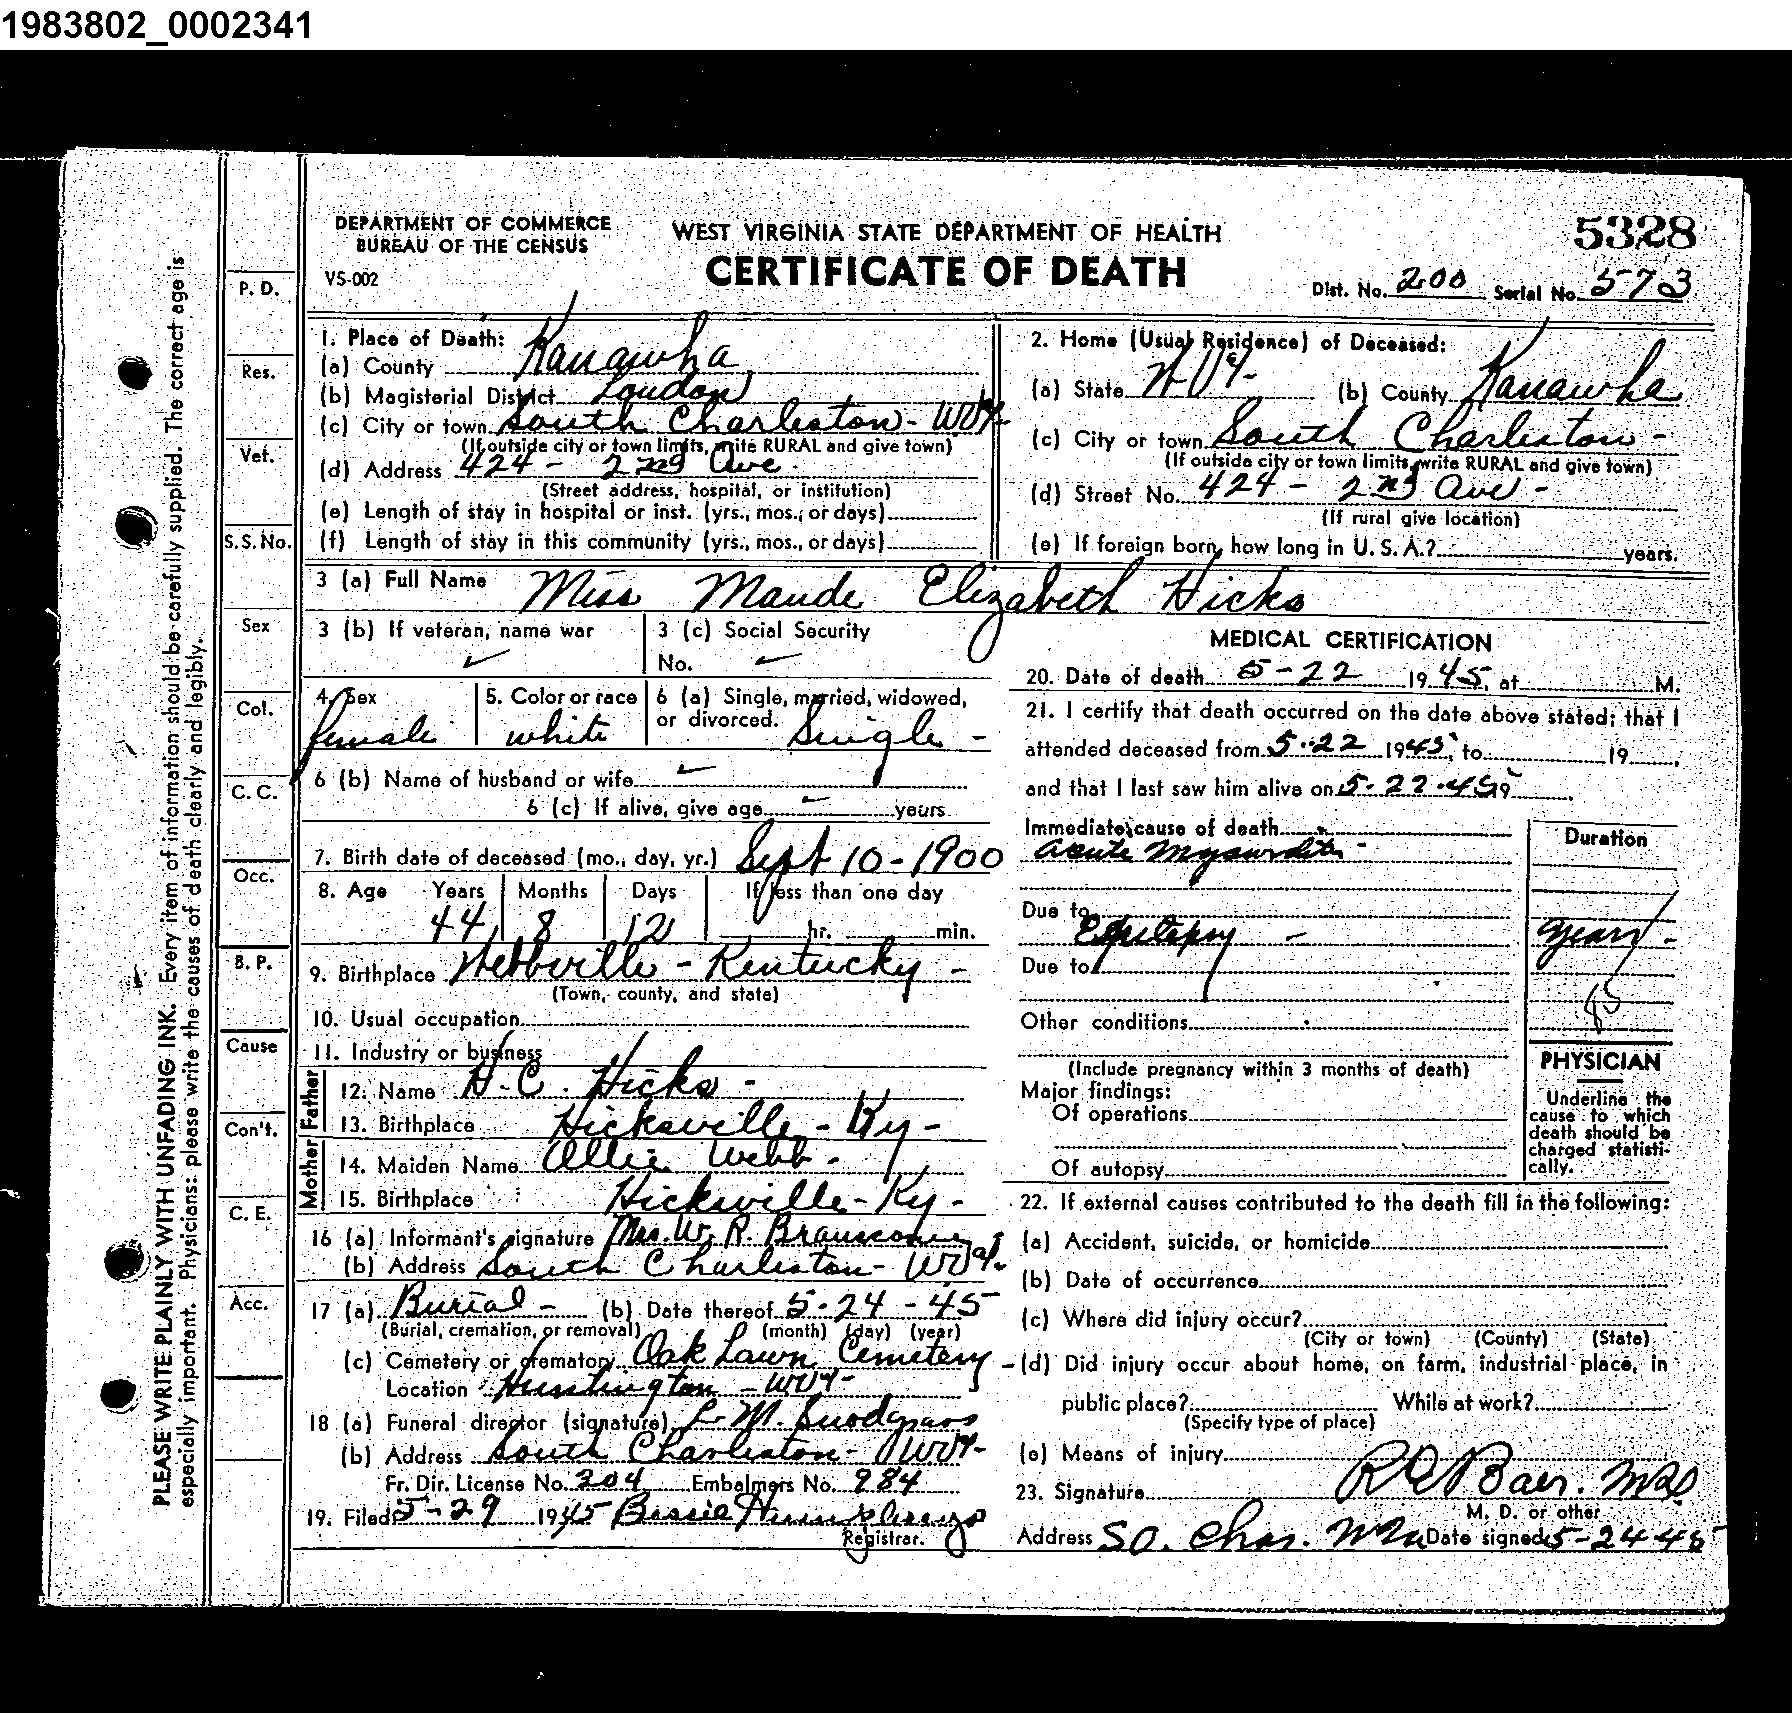 1983802_0002341
DEPARTMENT OF COMMERCE
BUREAU OF THE CENSUS
VS-002
WEST VIRGINIA STATE DEPARTMENT OF HEALTH
CERTIFICATE OF DEATH
5328
Dist. No. 200 Serial No. 573
PLEASE WRITE PLAINLY WITH UNFADING INK. Every item of information should be carefully supplied. The correct age is
especially important. Physicians: please write the causes of death clearly and legibly.
P. D.
Res.
Vet.
S.S. No.
Sex
Col.
C. C.
Occ.
B. P.
Cause
Con't.
C. E.
Acc.
1. Place of Death:
(a) County Kanawha
(b) Magisterial District Loudon
(c) City or town South Charleston - WVa-
(If outside city or town limits, write RURAL and give town)
(d) Address 424 - 2nd Ave.
(Street address, hospital, or institution)
(e) Length of stay in hospital or inst. (yrs., mos., or days)
(f) Length of stay in this community (yrs., mos., or days)
2. Home (Usual Residence) of Deceased:
(a) State W Va- (b) County Kanawha
(c) City or town South Charleston -
(If outside city or town limits, write RURAL and give town)
(d) Street No. 424 - 2nd Ave -
(If rural give location)
(e) If foreign born, how long in U. S. A.? years.
3 (a) Full Name Miss Maude Elizabeth Hicks
3 (b) If veteran, name war
3 (c) Social Security
No.
4. Sex
female
5. Color or race
white
6 (a) Single, married, widowed,
or divorced. Single -
6 (b) Name of husband or wife
6 (c) If alive, give age years
7. Birth date of deceased (mo., day, yr.) Sept 10 - 1900
8. Age Years Months Days If less than one day
44 8 12 hr. min.
9. Birthplace Webbville - Kentucky -
(Town, county, and state)
10. Usual occupation
11. Industry or business
Father
12. Name H. C. Hicks -
13. Birthplace Hicksville - Ky -
Mother
14. Maiden Name Ollie Webb -
15. Birthplace Hicksville - Ky -
16 (a) Informant's signature Mrs. W. R. Branscome
(b) Address South Charleston - WVa.
17 (a) Burial - (b) Date thereof 5-24-45
(Burial, cremation, or removal) (month) (day) (year)
(c) Cemetery or crematory Oak Lawn Cemetery -
Location Huntington - WVa-
18 (a) Funeral director (signature) L. M. Snodgrass
(b) Address South Charleston - WVa-
Fr. Dir. License No. 304 Embalmers No. 984
19. Filed 5-29 1945 Bessie Humphreys
Registrar.
MEDICAL CERTIFICATION
20. Date of death 5-22 1945, at M.
21. I certify that death occurred on the date above stated; that I
attended deceased from 5-22 1945, to 19 ,
and that I last saw him alive on 5-22-45 19
Immediate cause of death
acute Myocarditis -
Duration
Due to
Epilepsy - years -
Due to
Other conditions
(Include pregnancy within 3 months of death)
Major findings:
Of operations
Of autopsy
85
PHYSICIAN
Underline the
cause to which
death should be
charged statisti-
cally.
22. If external causes contributed to the death fill in the following:
(a) Accident, suicide, or homicide
(b) Date of occurrence
(c) Where did injury occur?
(City or town) (County) (State)
(d) Did injury occur about home, on farm, industrial place, in
public place? While at work?
(Specify type of place)
(e) Means of injury
23. Signature R C Baer. M.D.
M. D. or other
Address So. Chas. WVa Date signed 5-24-45